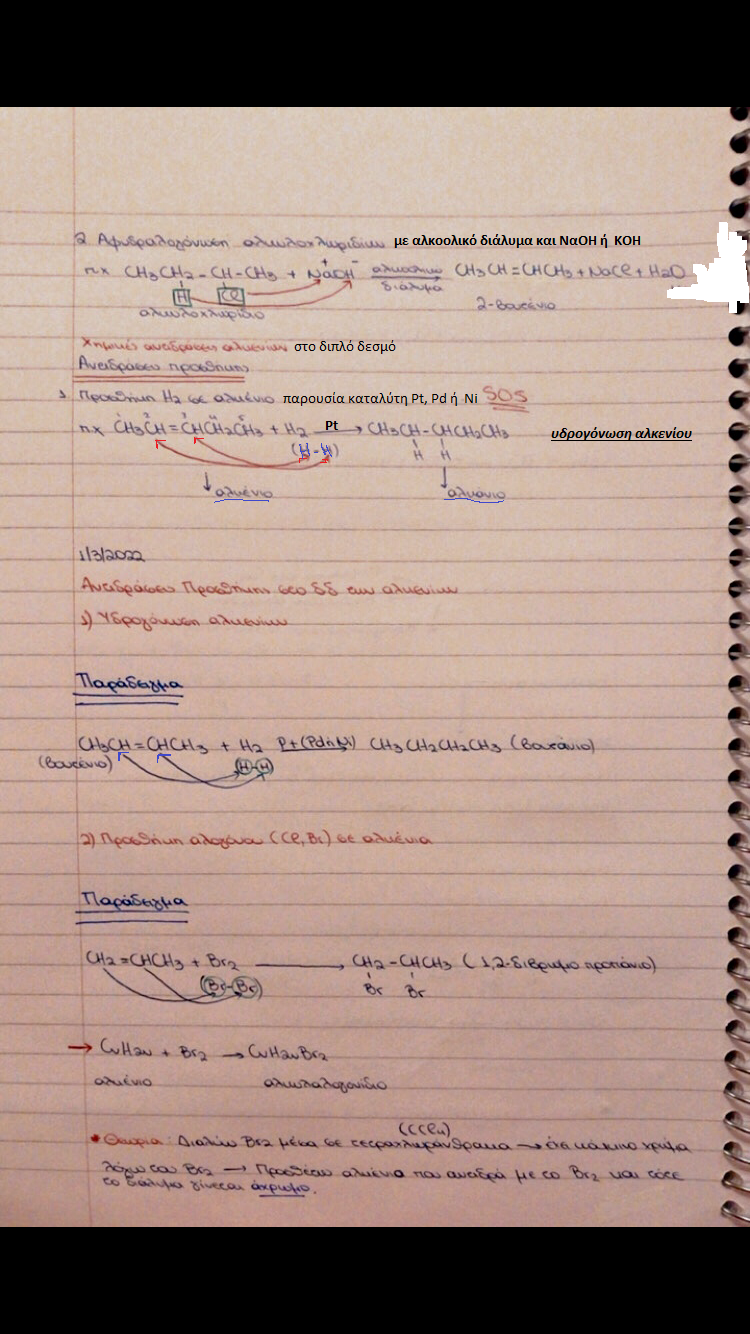 2 Αφυδραλογόνωση αλκυλοχλωριδίων με αλκοολικό διάλυμα και ΝαΟΗ ή ΚΟΗ
πχ CH3CH2 - CH - CH3 + Na+OH- αλκοολικο διάλυμα → CH3CH=CHCH3 + NaCl + H2O
H Cl
αλκυλοχλωρίδιο 2-βουτένιο
Χημικές αντιδράσεις αλκενίων στο διπλό δεσμό
Αντιδράσεις προσθήκης
1. Προσθήκη H2 σε αλκένιο παρουσία καταλύτη Pt, Pd ή Ni SOS
πχ CH3CH = CHCH2CH3 + H2 Pt → CH3CH - CHCH2CH3 υδρογόνωση αλκενίου
1 2 3 4 5
(H-H) H H
↓ αλκένιο ↓ αλκάνιο
1/3/2022
Αντιδράσεις Προσθήκης στο δδ των αλκενίων
1) Υδρογόνωση αλκενίων
Παράδειγμα
CH3CH=CHCH3 + H2 Pt(Pd ή Ni) → CH3CH2CH2CH3 (βουτάνιο)
(βουτένιο) H-H
2) Προσθήκη αλογόνου (Cl, Br) σε αλκένια
Παράδειγμα
CH2=CHCH3 + Br2 → CH2-CHCH3 (1,2-διβρωμο προπάνιο)
Br-Br Br Br
→ CνH2ν + Br2 → CνH2νBr2
αλκένιο αλκυλαλογονίδιο
(CCl4)
• Θεωρία: Διαλύω Br2 μέσα σε τετραχλωράνθρακα → έχει κόκκινο χρώμα
λόγω του Br2 → Προσθέτω αλκένιο που αντιδρά με το Br2 και τότε
το διάλυμα γίνεται άχρωμο.